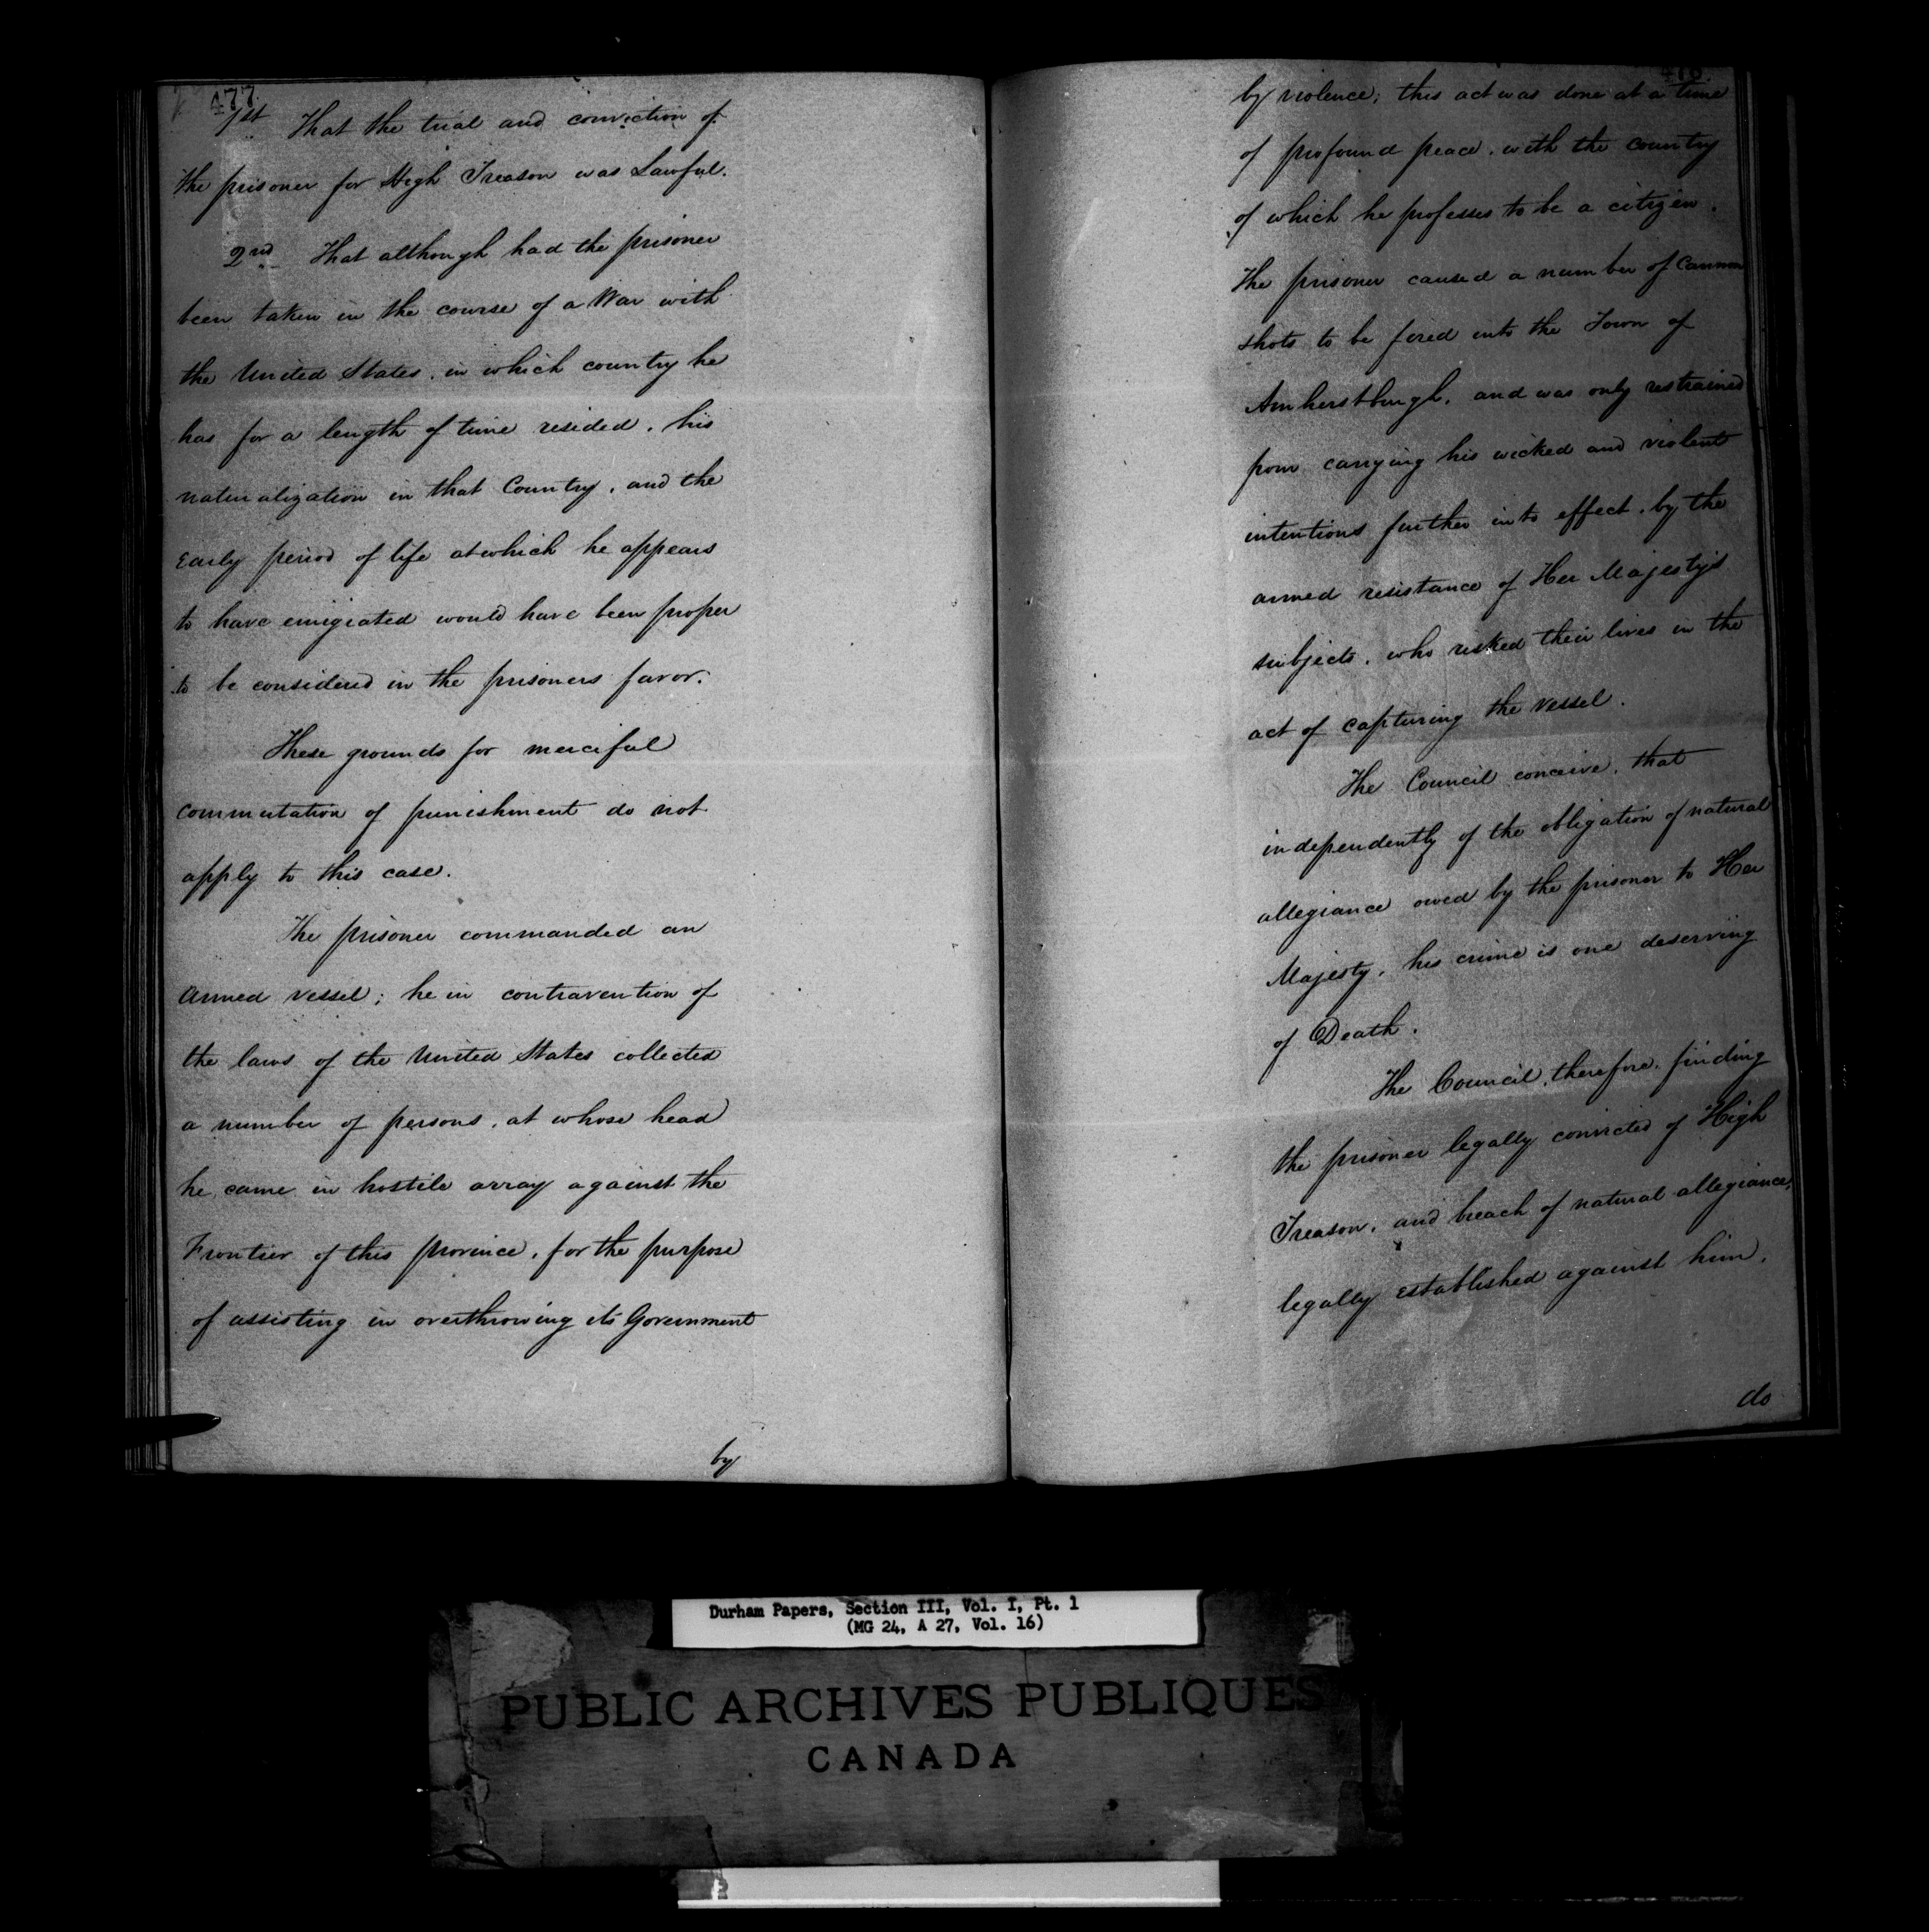 477.
1st That the trial and conviction of
the prisoner for High Treason was Lawful.
2nd That although had the prisoner
been taken in the course of a War with
the United States, in which country he
has for a length of time resided, his
naturalization in that Country, and the
early period of life at which he appears
to have emigrated would have been proper
to be considered in the prisoners favor.
These grounds for merciful
commutation of punishment do not
apply to this case.
The prisoner commanded an
armed vessel; he in contravention of
the laws of the United States collected
a number of persons, at whose head
he came in hostile array against the
Frontier of this province, for the purpose
of assisting in overthrowing its Government
by
478.
by violence; this act was done at a time
of profound peace, with the country
of which he professes to be a citizen.
The prisoner caused a number of Cannon
shots to be fired into the Town of
Amherstburgh, and was only restrained
from carrying his wicked and violent
intentions further into effect, by the
armed resistance of Her Majesty's
subjects, who risked their lives in the
act of capturing the vessel.
The Council conceive, that
independently of the obligation of natural
allegiance owed by the prisoner to Her
Majesty, his crime is one deserving
of Death.
The Council, therefore, finding
the prisoner legally convicted of High
Treason, and breach of natural allegiance,
legally established against him,
do
Durham Papers, Section III, Vol. I, Pt. 1
(MG 24, A 27, Vol. 16)
PUBLIC ARCHIVES PUBLIQUES
CANADA